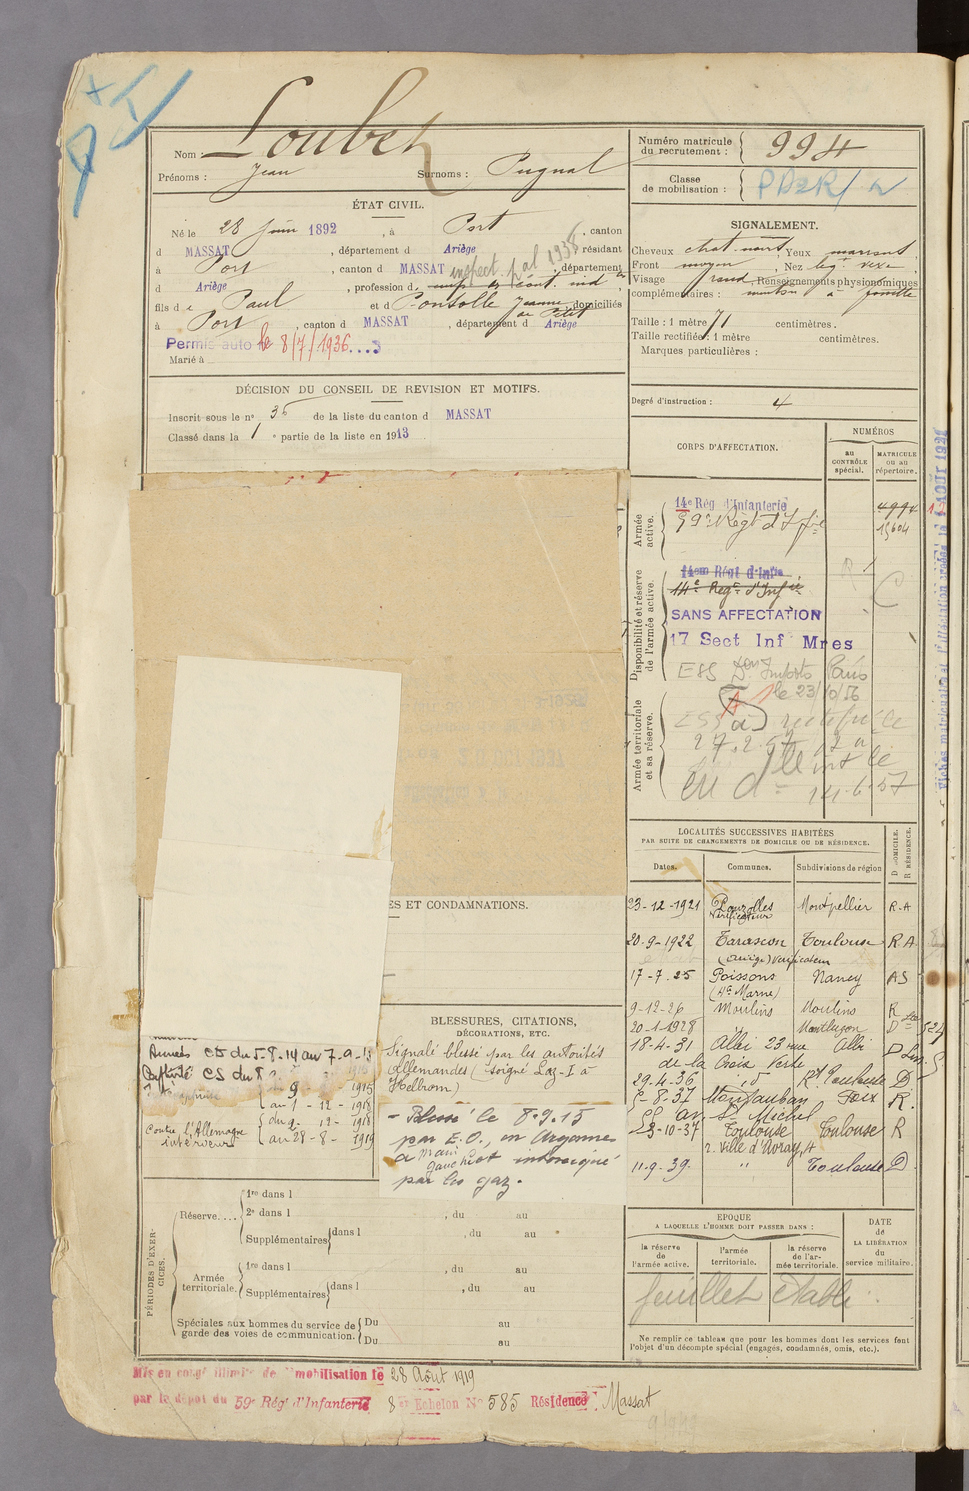 Nom : Loubet
Prénoms : Jean Surnoms : Pugnal
ÉTAT CIVIL.
Né le 28 Juin 1892, à Port, canton
d MASSAT, département d Ariège résidant
à Port, canton d MASSAT, département
d Ariège, profession d
inspect. 1938
fils de Paul et d Ponsolle Jeanne domiciliés
à Port, canton d MASSAT, département d Ariège
Permis auto le 8/7/1936
Marié à
DÉCISION DU CONSEIL DE REVISION ET MOTIFS.
Inscrit sous le n° 36 de la liste du canton d MASSAT
Classé dans la 1e partie de la liste en 1913
Numéro matricule
du recrutement : 994
Classe
de mobilisation :
SIGNALEMENT.
Cheveux chat. noirs, Yeux marrons
Front moyen, Nez
Visage rond, Renseignements physionomiques
complémentaires : menton à fossette
Taille : 1 mètre 71 centimètres.
Taille rectifiée : 1 mètre centimètres.
Marques particulières :
Degré d'instruction : 4
CORPS D'AFFECTATION.
NUMÉROS
au
CONTRÔLE
spécial.
MATRICULE
ou au
répertoire.
Armée
active.
14e Rég d'Infanterie
59e Régt d'Infie
4994
15604
Disponibilité et réserve
de l'armée active.
14eme Régt d'Infie
14e Régt d'Infie
SANS AFFECTATION
17 Sect Inf Mres
ESS Don Impots Paris
le 23/10/56
Armée territoriale
et sa réserve.
27.2.57
14.6.57
LOCALITÉS SUCCESSIVES HABITÉES
PAR SUITE DE CHANGEMENTS DE DOMICILE OU DE RÉSIDENCE.
Dates. Communes. Subdivisions de région
D DOMICILE.
R RÉSIDENCE.
23-12-1921 Pouzolles Montpellier R.A
Vérificateur
20-9-1922 Tarascon Toulouse R.A
(Ariège) Vérificateur
17-7-25 Poissons Nancy AS
(Hte Marne)
9-12-26 Moulins Moulins R
20-1-1928 Montluçon D
18-4-31 Albi 23 rue Albi D
de la Croix Verte
29-4-36 Toulouse D
5-8-37 Montauban Foix R.
St Michel
23-10-37 Toulouse Toulouse R
r. Ville d'Avray
11-9-39 " Toulouse D
ES ET CONDAMNATIONS.
BLESSURES, CITATIONS,
DÉCORATIONS, ETC.
Signalé blessé par les autorités
Allemandes (soigné Laz-I à
Helbrom)
- Blessé le 8.9.15
par E.O., en Argonne
à main
gauche et intoxiqué
par les gaz.
Armées CS du 5-8-14 au 7-9-15
Captivité CS du 8
au 1-12-1918
Contre l'Allemagne
intérieur
du 2-12-1918
au 28-8-1919
PÉRIODES D'EXERCICES.
Réserve....
1re dans l
2e dans l , du au
Supplémentaires dans l , du au
Armée
territoriale.
1re dans l , du au
Supplémentaires dans l , du au
Spéciales aux hommes du service de
garde des voies de communication.
Du au
Du au
EPOQUE
A LAQUELLE L'HOMME DOIT PASSER DANS :
la réserve
de
l'armée active.
l'armée
territoriale.
la réserve
de l'ar-
mée territoriale.
DATE
de
LA LIBÉRATION
du
service militaire.
feuillet établi
Ne remplir ce tableau que pour les hommes dont les services font
l'objet d'un décompte spécial (engagés, condamnés, omis, etc.).
Mis en congé illimité de démobilisation le 28 Août 1919
par le dépôt du 59e Régt d'Infanterie 8e Echelon No 585 Résidence Massat